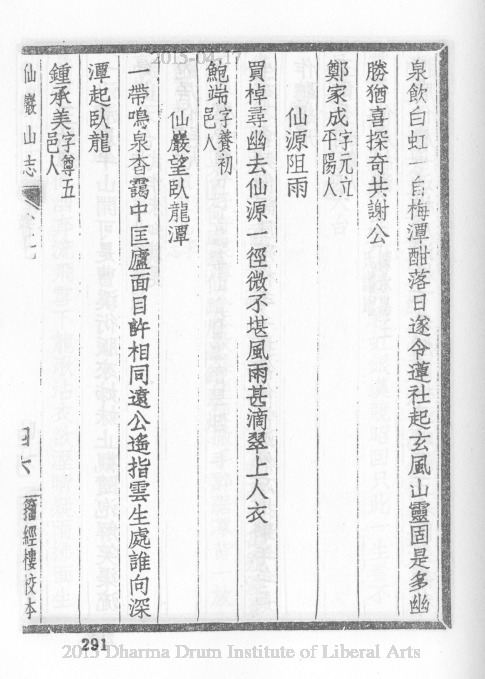 2015-04-17
泉飲白虹一自梅潭酣落日遂令蓮社起玄風山靈固是多幽
勝猶喜探奇共謝公
鄭家成字元立平陽人
仙源阻雨
買棹尋幽去仙源一徑微不堪風雨甚滴翠上人衣
鮑端字養初邑人
仙巖望臥龍潭
一帶鳴泉杳靄中匡廬面目許相同遠公遙指雲生處誰向深
潭起臥龍
鍾承美字尊五邑人
仙巖山志
籀經樓校本
291
2015 Dharma Drum Institute of Liberal Arts